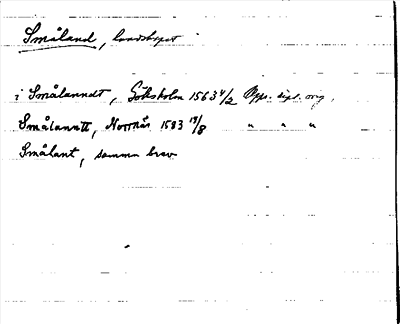 Småland, landskapet
i Smålanndt, Söksholm 1563 4/2 Upps. dipl. orig.
Smålanntt, Norrnäs 1583 19/8 " " "
Smålant, samma brev